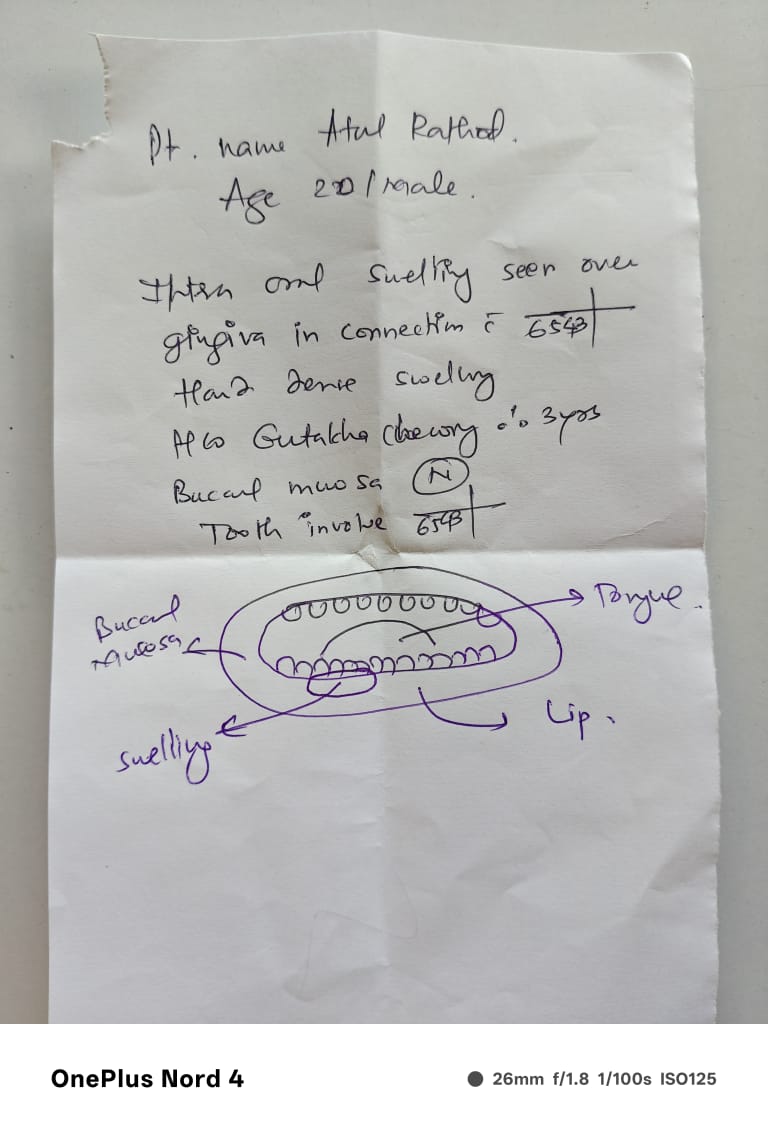 Pt. name Atul Rathod.
Age 20/male.
Intra oral swelling seen over
gingiva in connection c̄ 6543
Hard dense swelling
H/O Gutakha chewing 3 yrs
Buccal mucosa (N)
Tooth involve 6543
Buccal
Mucosa
Tongue.
Lip.
swelling
OnePlus Nord 4
26mm f/1.8 1/100s ISO125